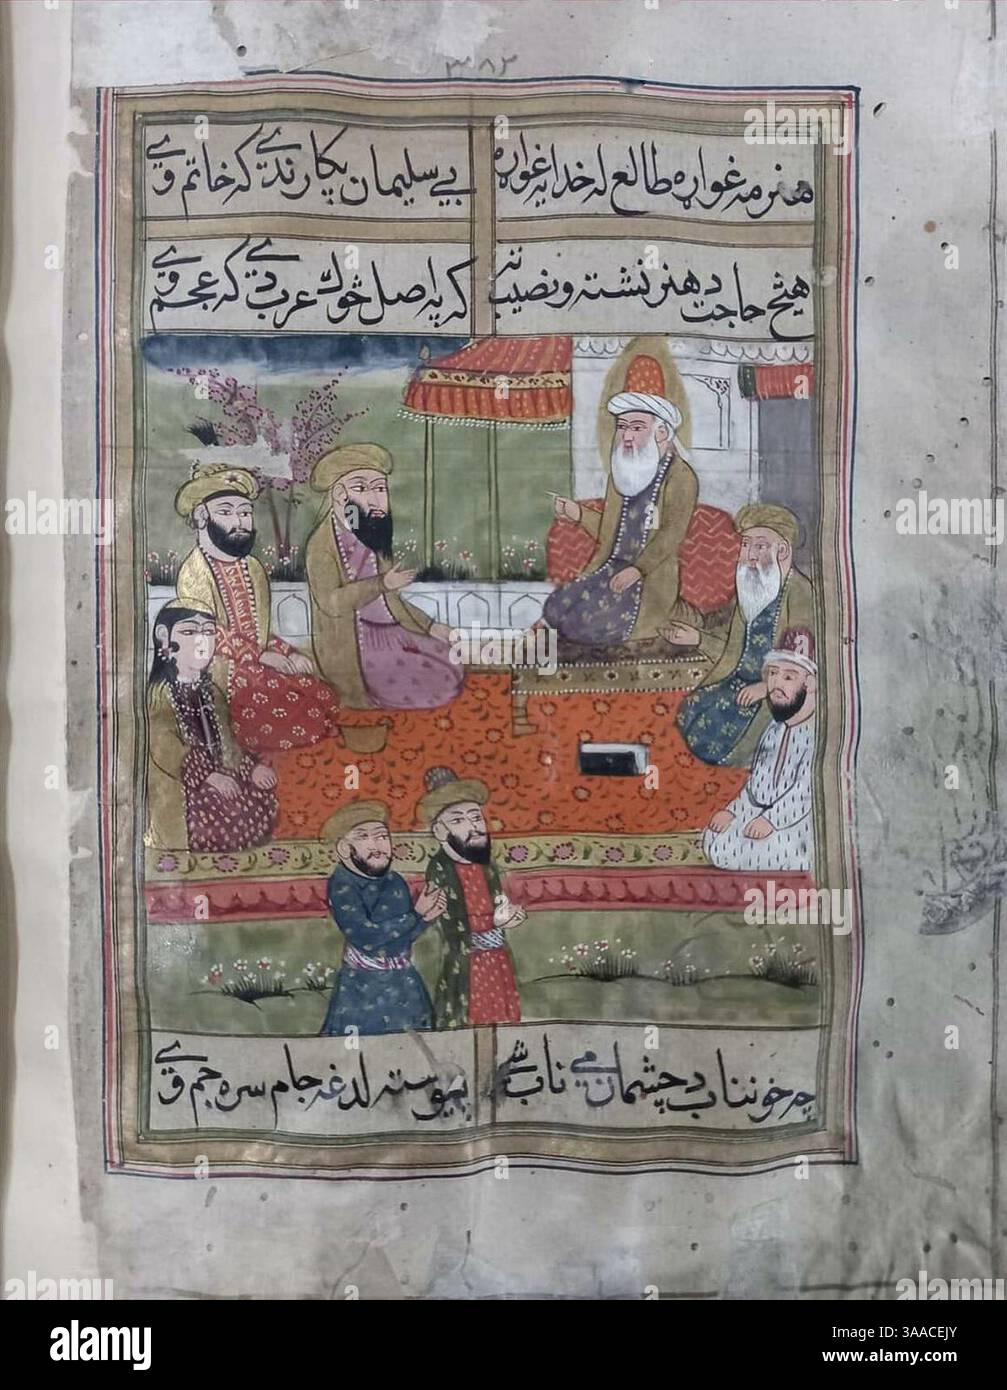 هنر مه غواړه طالع له خدایه غواړه بې سلیمان پکار ندې که خاتم وې
هیڅ حاجت د هنر نشته و نصیب ته که په اصل څوک عرب دې که عجم وې
چه خونناب د چشمان مې ناب شې پیوسته لدغه جام سره جم وې
alamy
Image ID: 3AACEJY
www.alamy.com